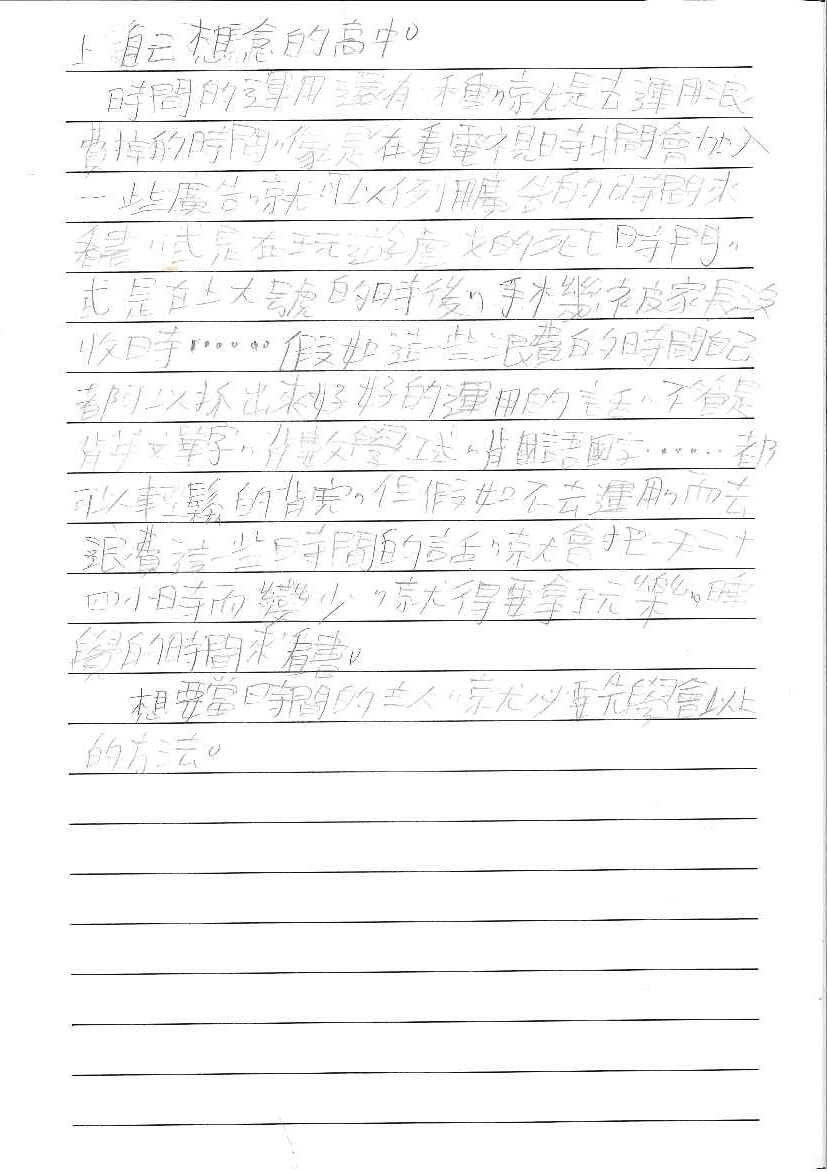 上自己想念的高中。
時間的運用還有一種,就是去運用浪
費掉的時間,像是在看電視時中間會加入
一些廣告,就可以利用廣告的時間來
看書,或是在玩遊戲的死亡時間,
或是在上大號的時後,手機被家長沒
收時……假如這一些浪費的時間自己
都可以抓出來好好的運用的話,不管是
背英文單字,背數學公式,背國語國字……都
可以輕鬆的背完,但假如不去運用,而去
浪費這一些時間的話,就會把一天二十
四小時而變少,就得要拿玩樂,睡
覺的時間來看書。
想要當時間的主人,就必要先學會以上
的方法。